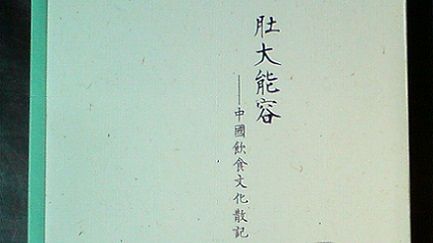 肚大能容
——中國飲食文化散記